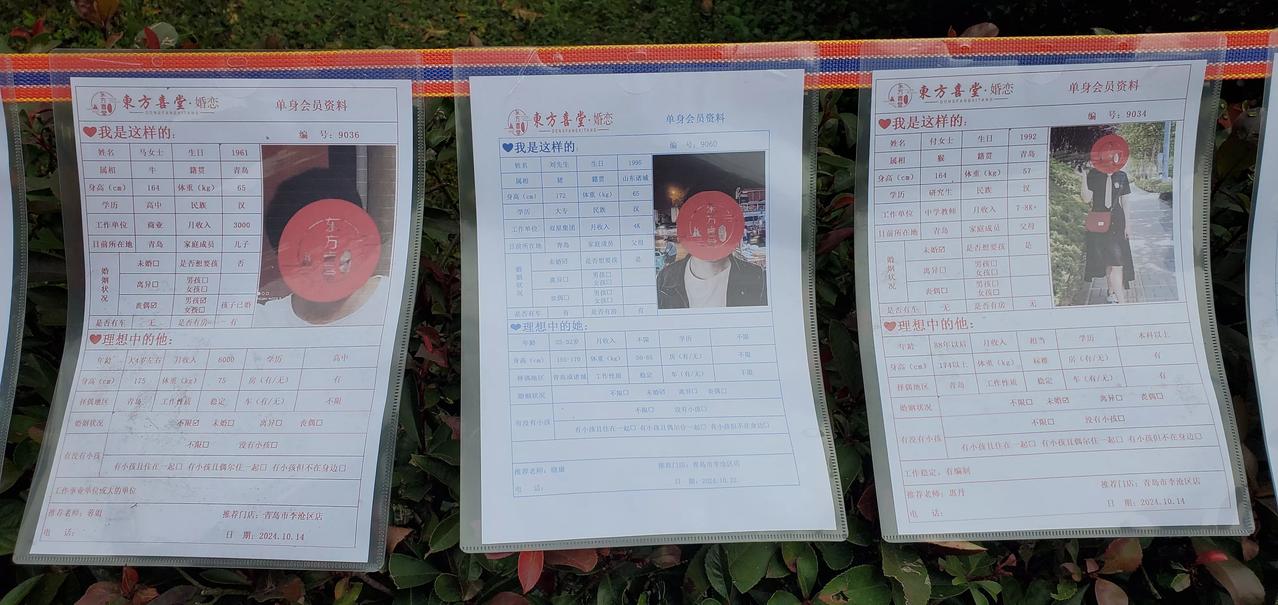 東方喜堂·婚恋 单身会员资料
DONGFANGXITANG
我是这样的: 编 号: 9036
姓名 马女士 生日 1961
属相 牛 籍贯 青岛
身高(cm) 164 体重(kg) 65
学历 高中 民族 汉
工作单位 商业 月收入 3000
目前所在地 青岛 家庭成员 儿子
婚姻状况 未婚☑ 是否想要孩 否
离异□ 男孩□ 女孩□
丧偶☑ 男孩☑ 女孩□ 孩子已婚
是否有车 无 是否有房 有
东方喜堂
理想中的他:
年龄 大4岁左右 月收入 6000 学历 高中
身高(cm) 175 体重(kg) 75 房(有/无) 有
择偶地区 青岛 工作性质 稳定 车(有/无) 不限
婚姻状况 不限☑ 未婚□ 离异□ 丧偶□
有没有小孩 不限□ 没有小孩□
有小孩且住在一起□ 有小孩且偶尔住一起□ 有小孩但不在身边□
工作事业单位或大的单位
推荐老师: 推荐门店: 青岛市李沧区店
电 话: 日 期: 2024.10.14
東方喜堂·婚恋 单身会员资料
DONGFANGXITANG
我是这样的: 编 号: 9060
姓名 刘先生 生日 1995
属相 猪 籍贯 山东诸城
身高(cm) 172 体重(kg) 65
学历 大专 民族 汉
工作单位 双星集团 月收入 4K
目前所在地 青岛 家庭成员 父母
婚姻状况 未婚☑ 是否想要孩 是
离异□ 男孩□ 女孩□
丧偶□ 男孩□ 女孩□
是否有车 有 是否有房 有
东方喜堂
理想中的她:
年龄 月收入 不限 学历 不限
身高(cm) 155-170 体重(kg) 50-65 房(有/无) 不限
择偶地区 青岛或诸城 工作性质 稳定 车(有/无) 不限
婚姻状况 不限□ 未婚☑ 离异□ 丧偶□
有没有小孩 不限□ 没有小孩□
有小孩且住在一起□ 有小孩且偶尔住一起□ 有小孩但不在身边□
推荐老师: 推荐门店: 青岛市李沧区店
电 话: 日 期: 2024.10.22
東方喜堂·婚恋 单身会员资料
DONGFANGXITANG
我是这样的: 编 号: 9034
姓名 付女士 生日 1992
属相 猴 籍贯 青岛
身高(cm) 164 体重(kg) 57
学历 研究生 民族 汉
工作单位 中学教师 月收入 7-8K+
目前所在地 青岛 家庭成员 父母
婚姻状况 未婚☑ 是否想要孩 是
离异□ 男孩□ 女孩□
丧偶□ 男孩□ 女孩□
是否有车 无 是否有房 无
理想中的他:
年龄 88年以后 月收入 相当 学历 本科以上
身高(cm) 174以上 体重(kg) 标准 房(有/无) 有
择偶地区 青岛 工作性质 稳定 车(有/无) 有
婚姻状况 不限□ 未婚☑ 离异□ 丧偶□
有没有小孩 不限□ 没有小孩□
有小孩且住在一起□ 有小孩且偶尔住一起□ 有小孩但不在身边□
工作稳定,有编制
推荐老师: 惠丹 推荐门店: 青岛市李沧区店
电 话: 日 期: 2024.10.14